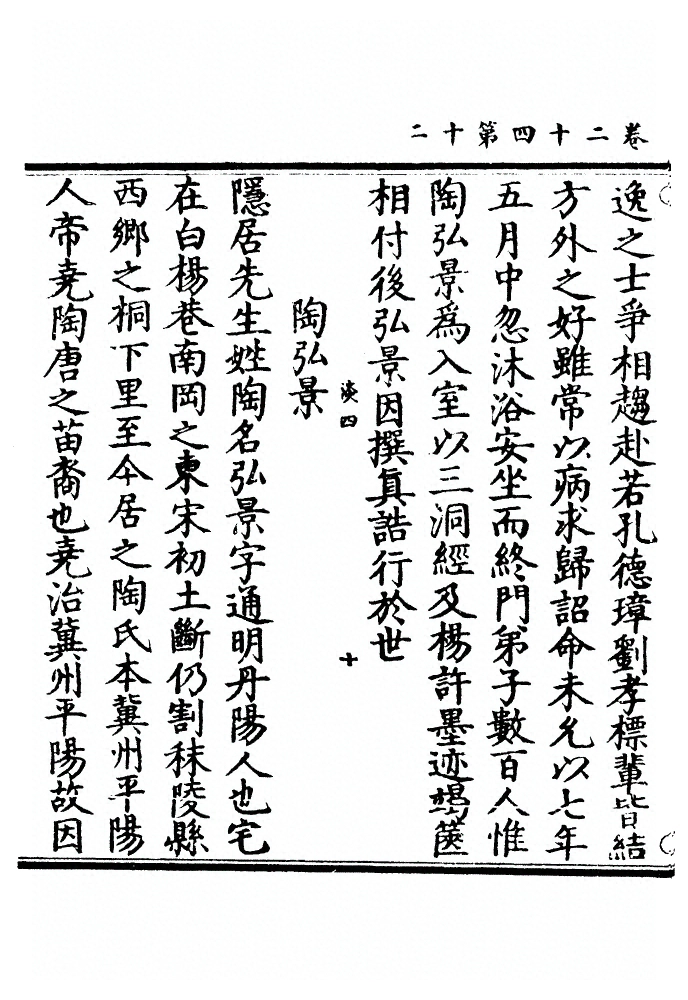 卷二十四第十二
逸之士爭相趨赴若孔德璋劉孝標輩皆結
方外之好雖常以病求歸詔命未允以七年
五月中忽沐浴安坐而終門弟子數百人惟
陶弘景爲入室以三洞經及楊許墨迹竭篋
相付後弘景因撰真誥行於世
淡四
十
陶弘景
隱居先生姓陶名弘景字通明丹陽人也宅
在白楊巷南岡之東宋初土斷仍割秣陵縣
西鄉之桐下里至今居之陶氏本冀州平陽
人帝堯陶唐之苗裔也堯治冀州平陽故因